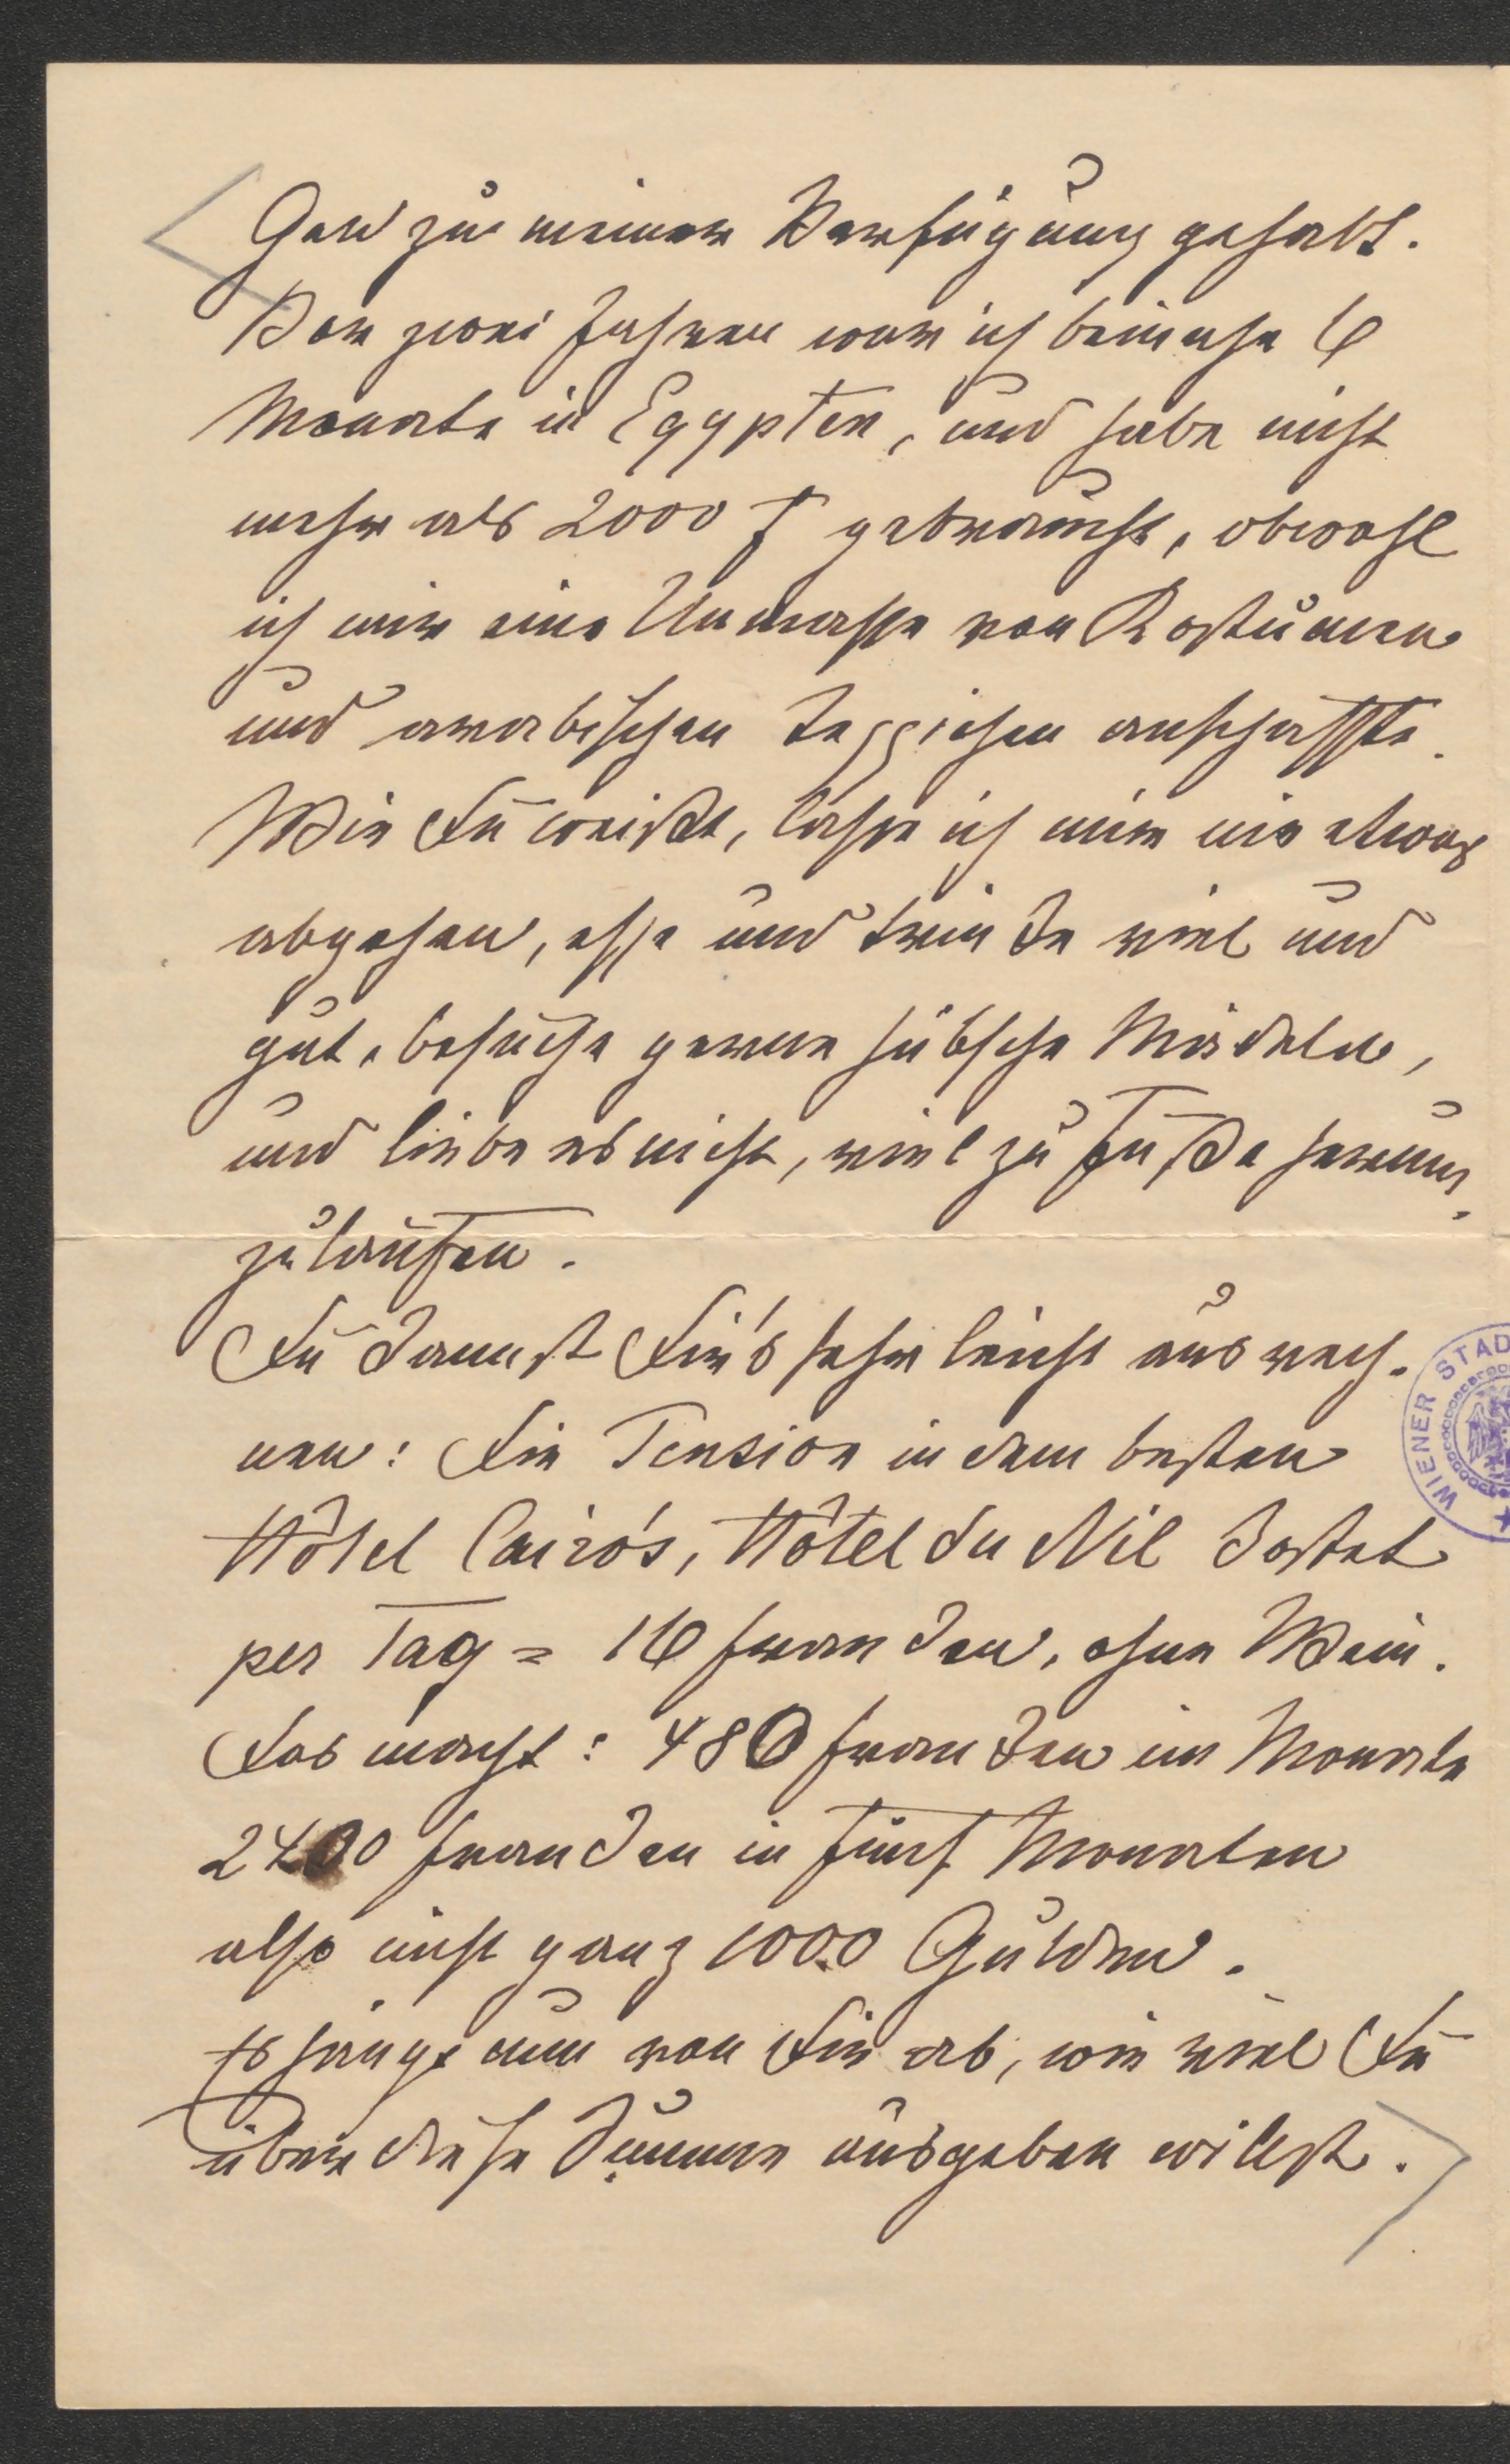 Geld zu meiner Verfügung gehabt.
Vor zwei Jahren war ich beinahe 6
Monate in Egypten, und habe nicht
mehr als 2000 f gebraucht, obwohl
ich mir eine Unmasse von Kostümen
und arabischen Teppichen anschaffte.
Wie Du weißt, lasse ich mir nie etwas
abgehen, esse und trinke viel und
gut, besuche gerne hübsche Mädeln,
und liebe es nicht, viel zu Fuße herum
zulaufen.
Du kannst Dir's sehr leicht ausrech-
nen: Die Pension in dem besten
Hôtel Cairo's, Hôtel du Nil kostet
per Tag = 16 franken, ohne Wein.
Das macht: 480 franken im Monate
2400 franken in fünf Monaten
also nicht ganz 1000 Gulden.
Es hängt nun von Dir ab, wie viel Du
über diese Summe ausgeben willst.
WIENER STAD